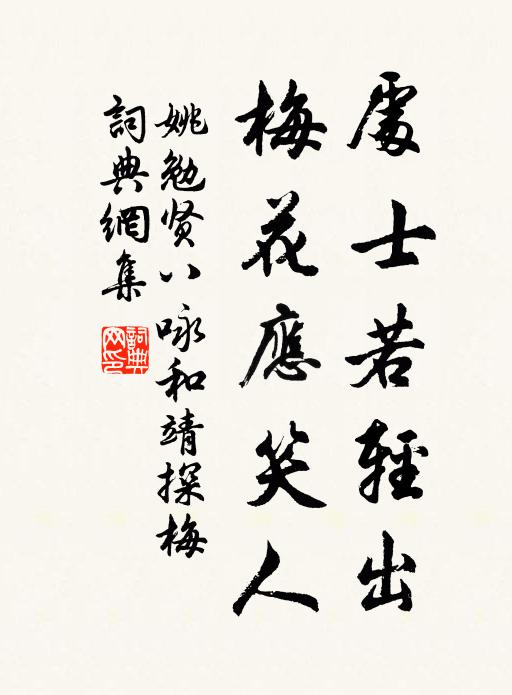 處士若輕出
梅花應笑人
姚勉贤八咏和靖探梅
詞典網集
詞典网印